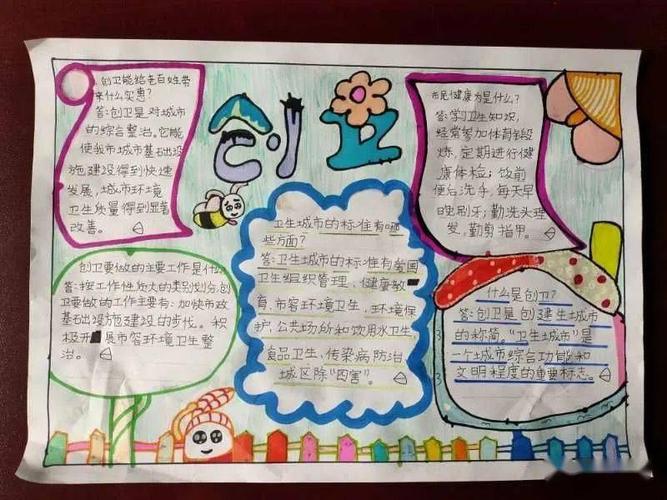 创卫
创卫能给老百姓带
来什么实惠?
答:创卫是对城市
的综合整治,它能
使我市城市基础设
施建设得到快速
发展,城市环境
卫生质量得到显著
改善。
市民健康为是什么?
答:学习卫生知识,
经常参加体育锻
炼,定期进行健
康体检;饭前
便后洗手,每天早
晚刷牙;勤洗头理
发,勤剪指甲。
卫生城市的标准有哪
些方面?
答:卫生城市的标准有爱国
卫生组织管理,健康教
育,市容环境卫生,环境保
护,公共场所和饮用水卫生,
食品卫生,传染病防治
城区除“四害”。
创卫要做的主要工作是什么
答:按工作性质大的类别划分,创
卫要做的工作主要有:加快市政
基础设施建设的步伐。积
极开展市容环境卫生整
治。
什么是创卫?
答:创卫是创建卫生城市
的称简。“卫生城市”是
一个城市综合功能和
文明程度的重要标志。